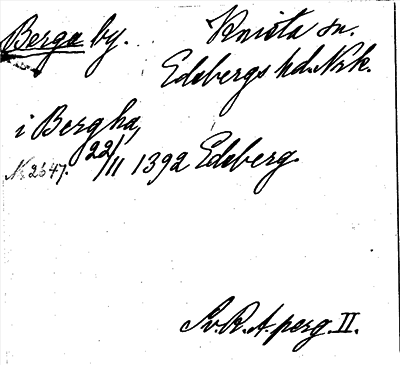 Berga by.
Knista sn.
Edsbergs hd. Nrk.
i Bergha,
N. 2647. 22/11 1392 Edsberg
Sv. R. A. perg. II.